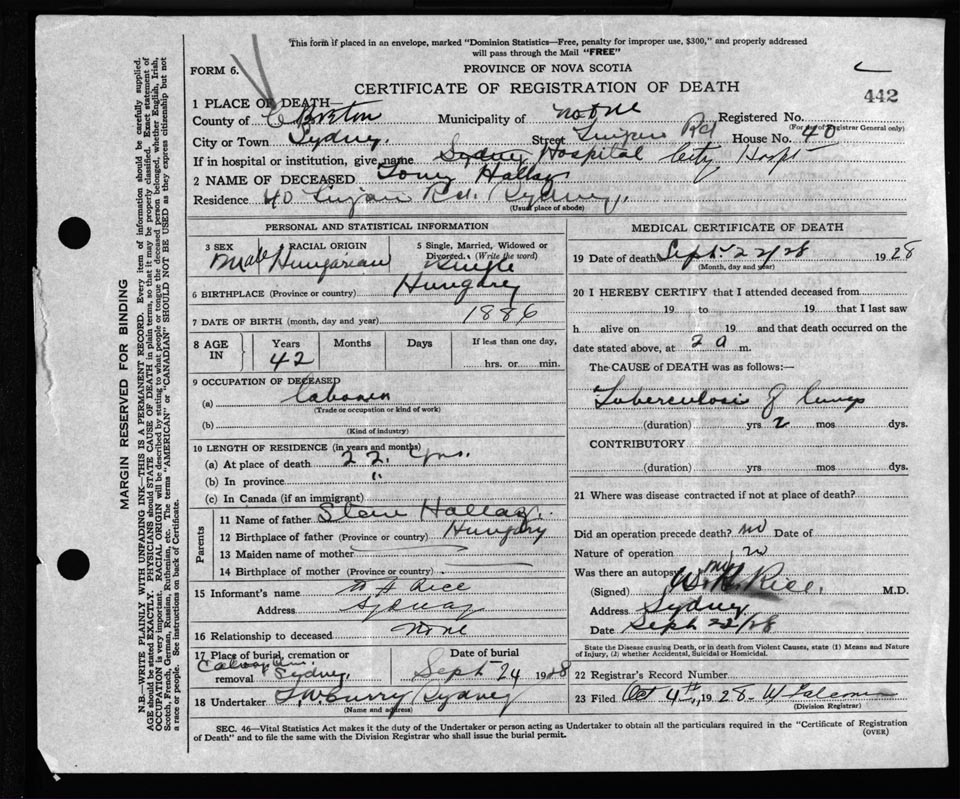 This form if placed in an envelope, marked "Dominion Statistics—Free, penalty for improper use, $300," and properly addressed
will pass through the Mail "FREE"
FORM 6.
PROVINCE OF NOVA SCOTIA
CERTIFICATE OF REGISTRATION OF DEATH
442
1 PLACE OF DEATH—
County of C Breton Municipality of Registered No.
(For use of Registrar General only)
City or Town Sydney Street Rd House No. 40
If in hospital or institution, give name Sydney Hospital City Hospt
2 NAME OF DECEASED Tony Hallag
Residence 40 Rd. Sydney.
(Usual place of abode)
PERSONAL AND STATISTICAL INFORMATION
3 SEX Male
RACIAL ORIGIN Hungarian
5 Single, Married, Widowed or
Divorced. (Write the word)
Single
6 BIRTHPLACE (Province or country) Hungary
7 DATE OF BIRTH (month, day and year) 1886
8 AGE IN
Years Months Days If less than one day,
42 hrs. or min.
9 OCCUPATION OF DECEASED
(a) Laborer
(Trade or occupation or kind of work)
(b)
(Kind of industry)
10 LENGTH OF RESIDENCE (in years and months)
(a) At place of death 22 yrs.
(b) In province "
(c) In Canada (if an immigrant)
Parents
11 Name of father Hallag
12 Birthplace of father (Province or country) Hungary
13 Maiden name of mother
14 Birthplace of mother (Province or country)
15 Informant's name Rice
Address Sydney
16 Relationship to deceased none
17 Place of burial, cremation or
removal Sydney
Date of burial
Sept 24 1928
18 Undertaker Curry Sydney
(Name and address)
MEDICAL CERTIFICATE OF DEATH
19 Date of death Sept. 22/28 1928
(Month, day and year)
20 I HEREBY CERTIFY that I attended deceased from
19 to 19 that I last saw
h alive on 19 and that death occurred on the
date stated above, at 2 a m.
The CAUSE of DEATH was as follows:—
Tuberculosis of lungs
(duration) yrs 2 mos dys.
CONTRIBUTORY
(duration) yrs mos dys.
21 Where was disease contracted if not at place of death?
Did an operation precede death? no Date of
Nature of operation
Was there an autopsy no
(Signed) W. H. Rice. M.D.
Address Sydney
Date Sept 22/28
State the Disease causing Death, or in Death from Violent Causes, state (1) Means and Nature
of Injury, (2) whether Accidental, Suicidal or Homicidal.
22 Registrar's Record Number
23 Filed Oct 4th, 1928
(Division Registrar)
SEC. 46—Vital Statistics Act makes it the duty of the Undertaker or person acting as Undertaker to obtain all the particulars required in the "Certificate of Registration
of Death" and to file the same with the Division Registrar who shall issue the burial permit.
(OVER)
MARGIN RESERVED FOR BINDING
N.B.—WRITE PLAINLY WITH UNFADING INK—THIS IS A PERMANENT RECORD. Every item of information should be carefully supplied.
AGE should be stated EXACTLY. PHYSICIANS should STATE CAUSE OF DEATH in plain terms, so that it may be properly classified. Exact statement of
OCCUPATION is very important. RACIAL ORIGIN will be described by stating to what people or tongue the deceased person belonged, whether English, Irish,
Scotch, French, German, Russian, Ruthenian, etc. The terms "AMERICAN" or "CANADIAN" SHOULD NOT BE USED as they express citizenship but not
a race or people. See instructions on back of Certificate.